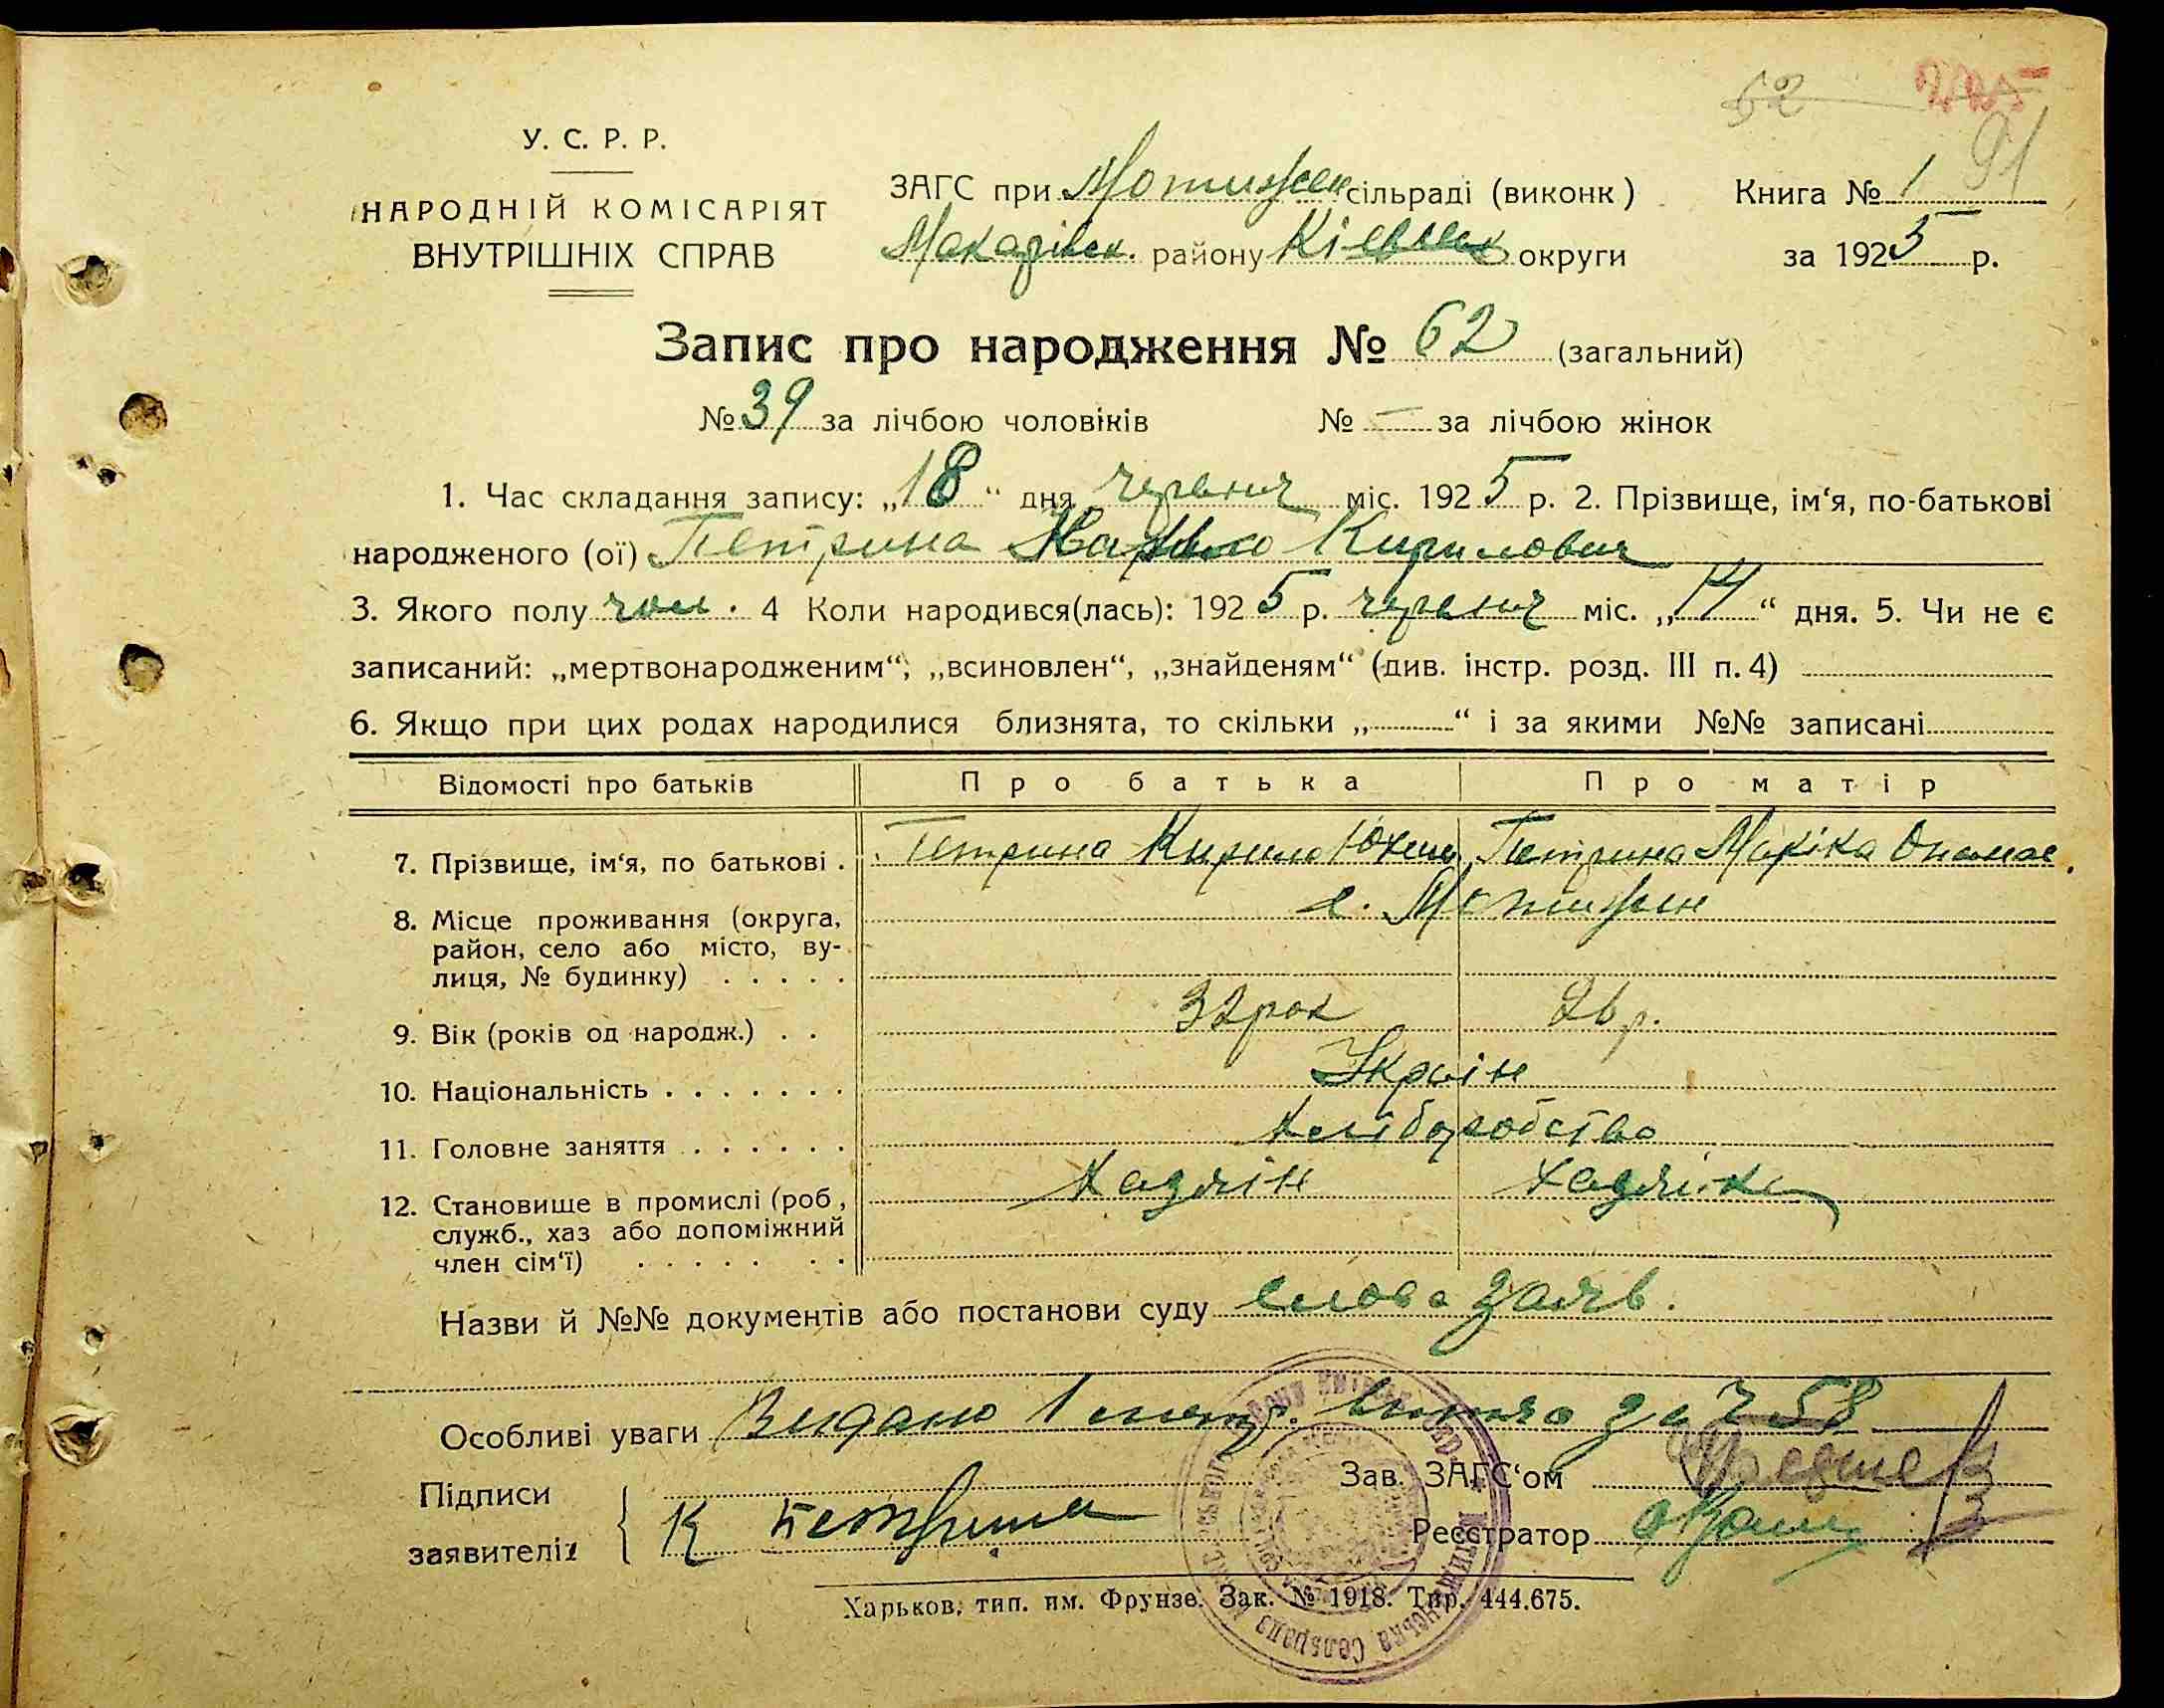 52
91
У. С. Р. Р.
НАРОДНІЙ КОМІСАРІЯТ
ВНУТРІШНІХ СПРАВ
ЗАГС при Мотижен сільраді (виконк)
Макарівск. району Кіевськ округи
Книга № 1
за 1925 р.
Запис про народження № 62 (загальний)
№ 39 за лічбою чоловіків № — за лічбою жінок
1. Час складання запису: „18“ дня червня міс. 1925 р. 2. Прізвище, ім‘я, по-батькові
народженого (ої) Петрина Кирилович
3. Якого полу чол. 4 Коли народився(лась): 1925 р. червня міс. „14“ дня. 5. Чи не є
записаний: „мертвонародженим“, „всиновлен“, „знайденям“ (див. інстр. розд. III п. 4)
6. Якщо при цих родах народилися близнята, то скільки „ “ і за якими №№ записані
Відомості про батьків Про батька Про матір
7. Прізвище, ім‘я, по батькові . Петрина Кирило Юхим Петрина Маріка Опанас.
8. Місце проживання (округа, с. Мотижин
район, село або місто, ву-
лиця, № будинку) . . . . .
9. Вік (років од народж.) . . 32 рок 26 р.
10. Національність . . . . . . . Україн
11. Головне заняття . . . . . . Хліборобство
12. Становище в промислі (роб, Хазяін Хазяйка
служб., хаз або допоміжний
член сім‘ї) . . . . . . .
Назви й №№ документів або постанови суду слова заяв.
Особливі уваги Видано 1 за Ч 58
Підписи
заявителів
К Петрина
Зав. ЗАГС‘ом
Реєстратор
Харьков, тип. им. Фрунзе. Зак. № 1918. Тир. 444.675.